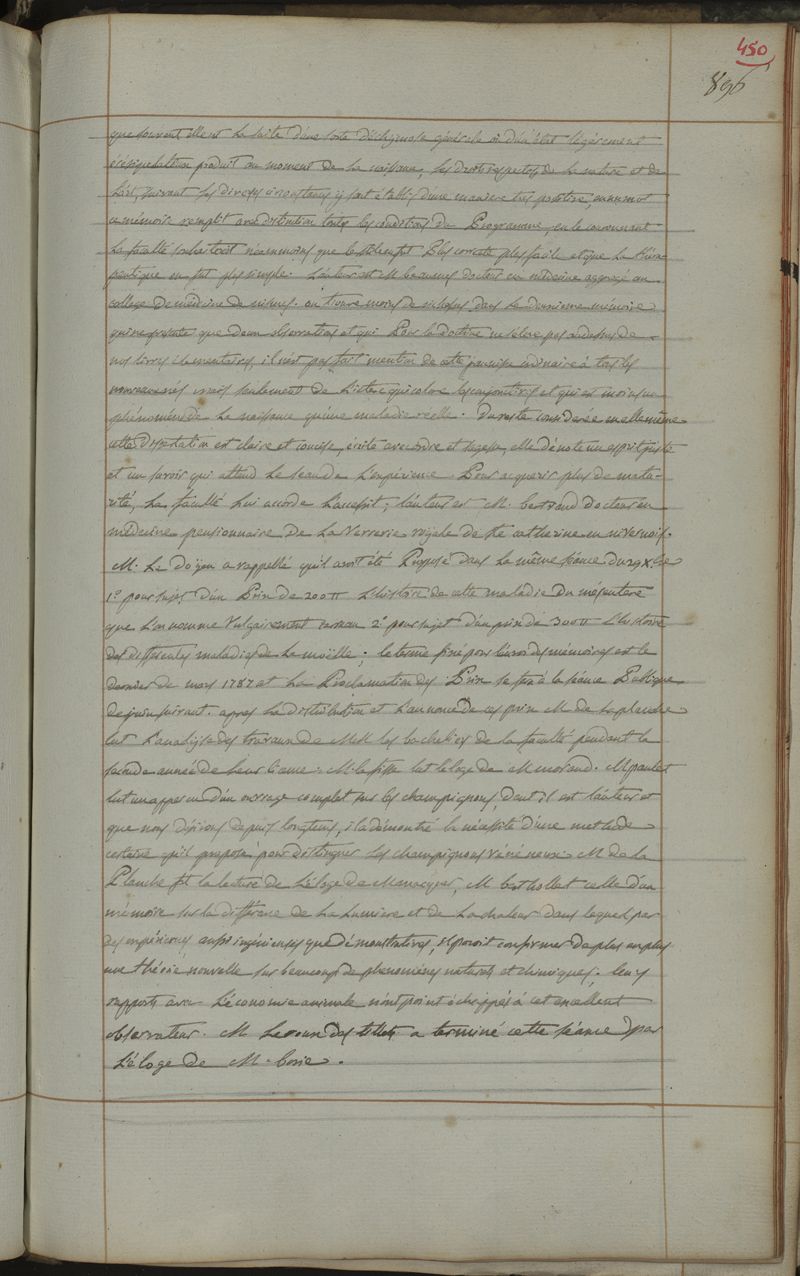 450
896
que souvent elle est la suite d'une sorte d'échymose générale ou d'un état légérement
érésipelateux produit au moment de la naissance, les droits respectifs de la nature et de
l'art, suivant les diverses circonstances y sont établis d'une maniere tres positive, en un mot
ce mémoire remplit avec distinction toutes les conditions du Programme, en le couronnant
la faculté souhaiteroit néanmoins que le stile en fut plus correcte plus facile et que la thera-
peutique en fut plus simple. L'auteur est M. Beaumes docteur en médecine aggregé au
college de médecine de nismes. on trouve moins de richesses dans le deuxieme mémoire
qui ne presente que deux observations et qui pour la doctrine ne s'éleve pas audessus de
nos livres élementaires, il n'est pas fait mention de cette jaunisse ordinaire à tous les
nouveaux nés mais seulement de l'ictere qui colore les conjonctives et qui est moins un
phénoméne de la naissance qu'une maladie réelle. Du reste considerée en elle même
cette dissertation est claire et concise, écrite avec ordre et sagesse, elle dénote un esprit juste
et un savoir qui attend le sceau de l'expérience pour acquerir plus de matu-
rité, la faculté lui accorde l'accessit; l'auteur est M. bertrand docteur en
médecine pensionnaire de la verrerie royale de Ste catherine en nivernois.
M. Le Doyen a rappellé qu'il avoit été proposé dans la même séance du 29 Xbre
1° pour sujet d'un Prix de 200 ## L'histoire de cette maladie du mésentere
que l'on nomme vulgairement carreau 2° pour sujet d'un prix de 300 ## L'histoire
des differentes maladies de la moëlle; le terme fixé pour l'envoi des mémoires est le
dernier de mars 1787 et la Proclamation des Prix se fera à la séance Publique
de juin suivant. apres la distribution et l'annonce de ces prix M. de la planche
lut l'analyse des travaux de MM les bacheliers de la faculté pendant la
seconde année de leur licence. M. lut l'eloge de M morand. M paulet
lut un apperçu d'un ouvrage complet sur les champignons, dont il est l'auteur et
que nous désirons depuis longtems, il a démontré la nécessité d'une methode
certaine qu'il propose pour distinguer les champignons vénéneux. M de la
Planche fit la lecture de l'éloge de M macquer, M berthollet celle d'un
mémoire sur la différence de la lumiere et de la chaleur dans lequel par
des expériences aussi ingénieuses que démonstratives, il paroit confirmer de plus en plus
une théorie nouvelle sur beaucoup de phenomènes naturels et chimiques; leurs
rapports avec l'économie animale n'ont point échappés à cet excellent
observateur. M Leroux des tillets a terminé cette séance par
l'éloge de M.